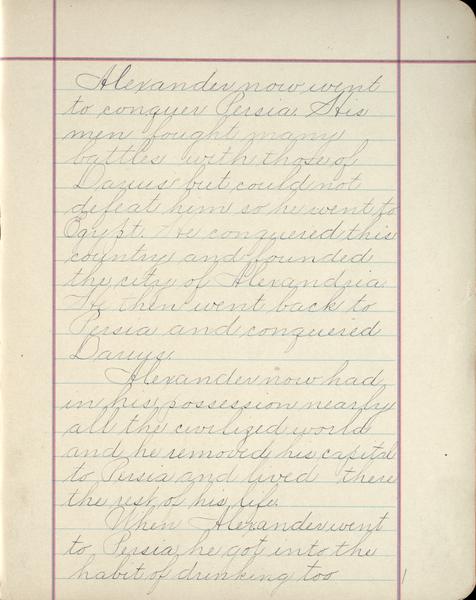 Alexander now went
to conquer Persia. His
men fought many
battles with those of
Darius but could not
defeat him so he went to
Egypt. He conquered this
country and founded
the city of Alexandria.
He then went back to
Persia and conquered
Darius.
Alexander now had
in his possession nearly
all the civilized world
and he removed his capital
to Persia and lived there
the rest of his life.
When Alexander went
to Persia he got into the
habit of drinking too